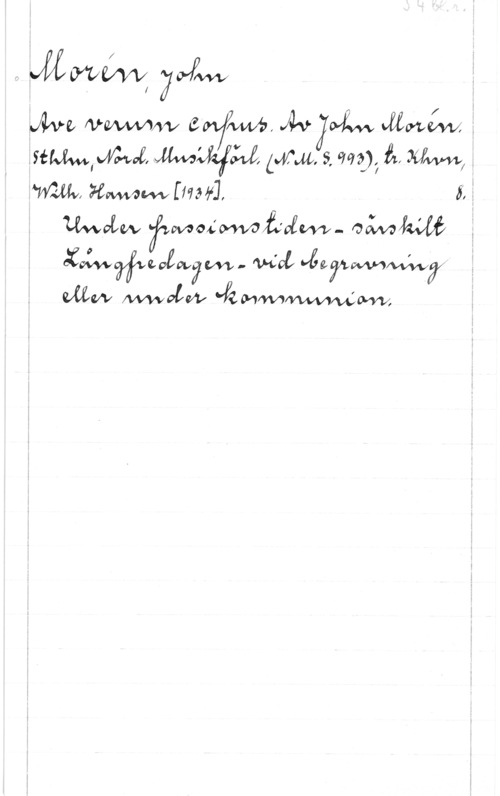 Morén, John
Ave verum corpus. Av John Morén.
Sthlm, Nord. Musikförl. (N.M.S. 993), tr. Khvn,
Wilh. Hansen [1934]. 8.
Under passionstiden - särskilt
Långfredagen - vid begravning
eller under kommunion.